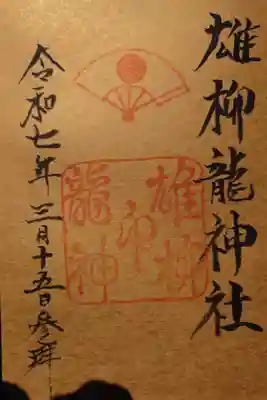 雄柳龍神社
雄柳
印
龍神
令和七年三月十五日参拝